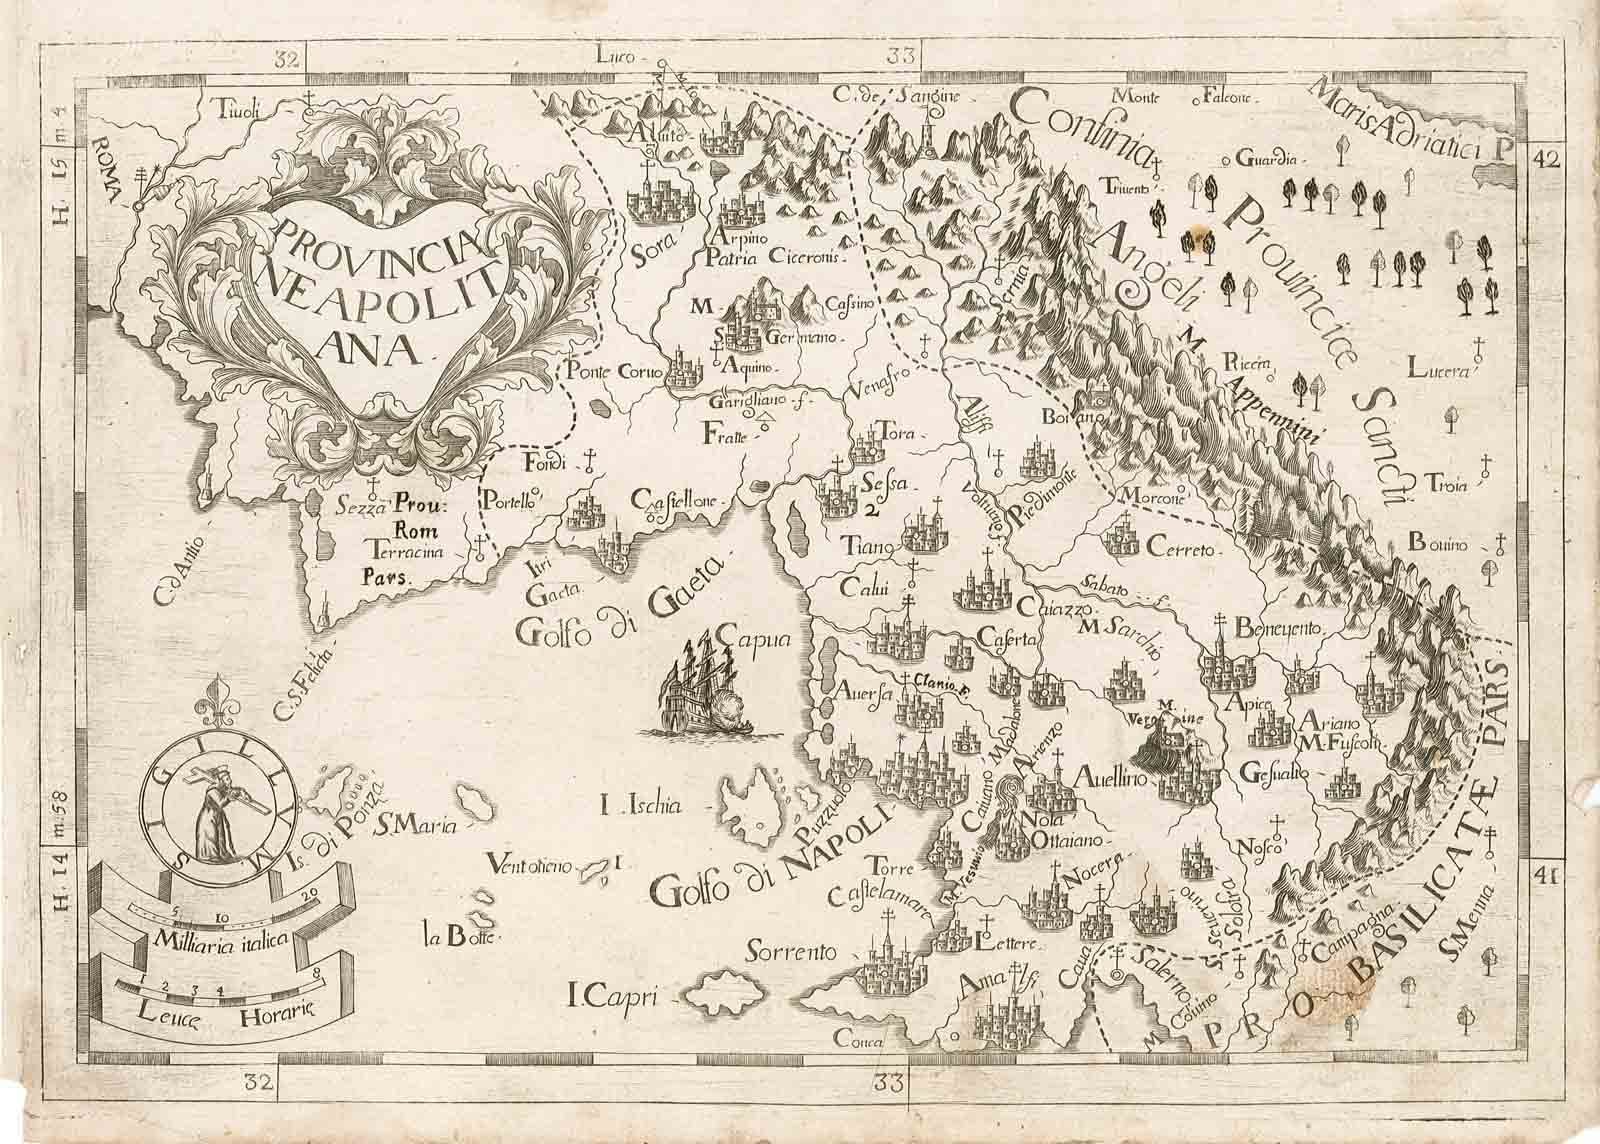 32
Luco
33
Tivoli
C. de Sangine
Confinia
Monte Falcone
Maris Adriatici P
H. 15 m 4
ROMA
Aluito
42
Guardia
Triuento
Angeli
Prouinciæ
Sancti
PROVINCIA
NEAPOLIT
ANA
Sora
Arpino
Patria Ciceronis
Sernia
M Cassino
S Germano
Ponte Coruo
Aquino
Venafro
M. Appennini
Riccia
Lucera
Garigliano f.
Fratte
Aliff
Boiano
Tora
Fondi
Sezza
Prou:
Rom
Terracina
Pars.
Portello
Castellone
Sessa
2
Volturno f.
Piedimonte
Morcone
Troia
C. d Antio
Itri
Gaeta
Golfo di Gaeta
Tiano
Cerreto
Bouino
Calui
Caiazzo
Sabato f.
Capua
Caserta
M Sarchio
Beneuento
C. S. Felicia
Auersa
Clanio F.
Madalone
Arienzo
M. Vergine
Apice
Ariano
M. Fuscoli
PARS
SIGILLVM
Is. di Ponza
S. Maria
I. Ischia
Puzzuolo
Caiuano
Auellino
Gesualdo
H. 14 m. 58
Nola
Ottaiano
Nosco
41
Ventotieno I
Golfo di NAPOLI
Torre
M. Vesuuio
Castelamare
Nocera
S Seuerino
Solofra
la Botte
5 10 20
Milliaria italica
1 2 3 4 8
Leucę Horarię
Sorrento
Lettere
I. Capri
Amalfi
Caua
Salerno
Campagna
S. Menna
Conca
M Coruino
PRO BASILICATÆ
32
33